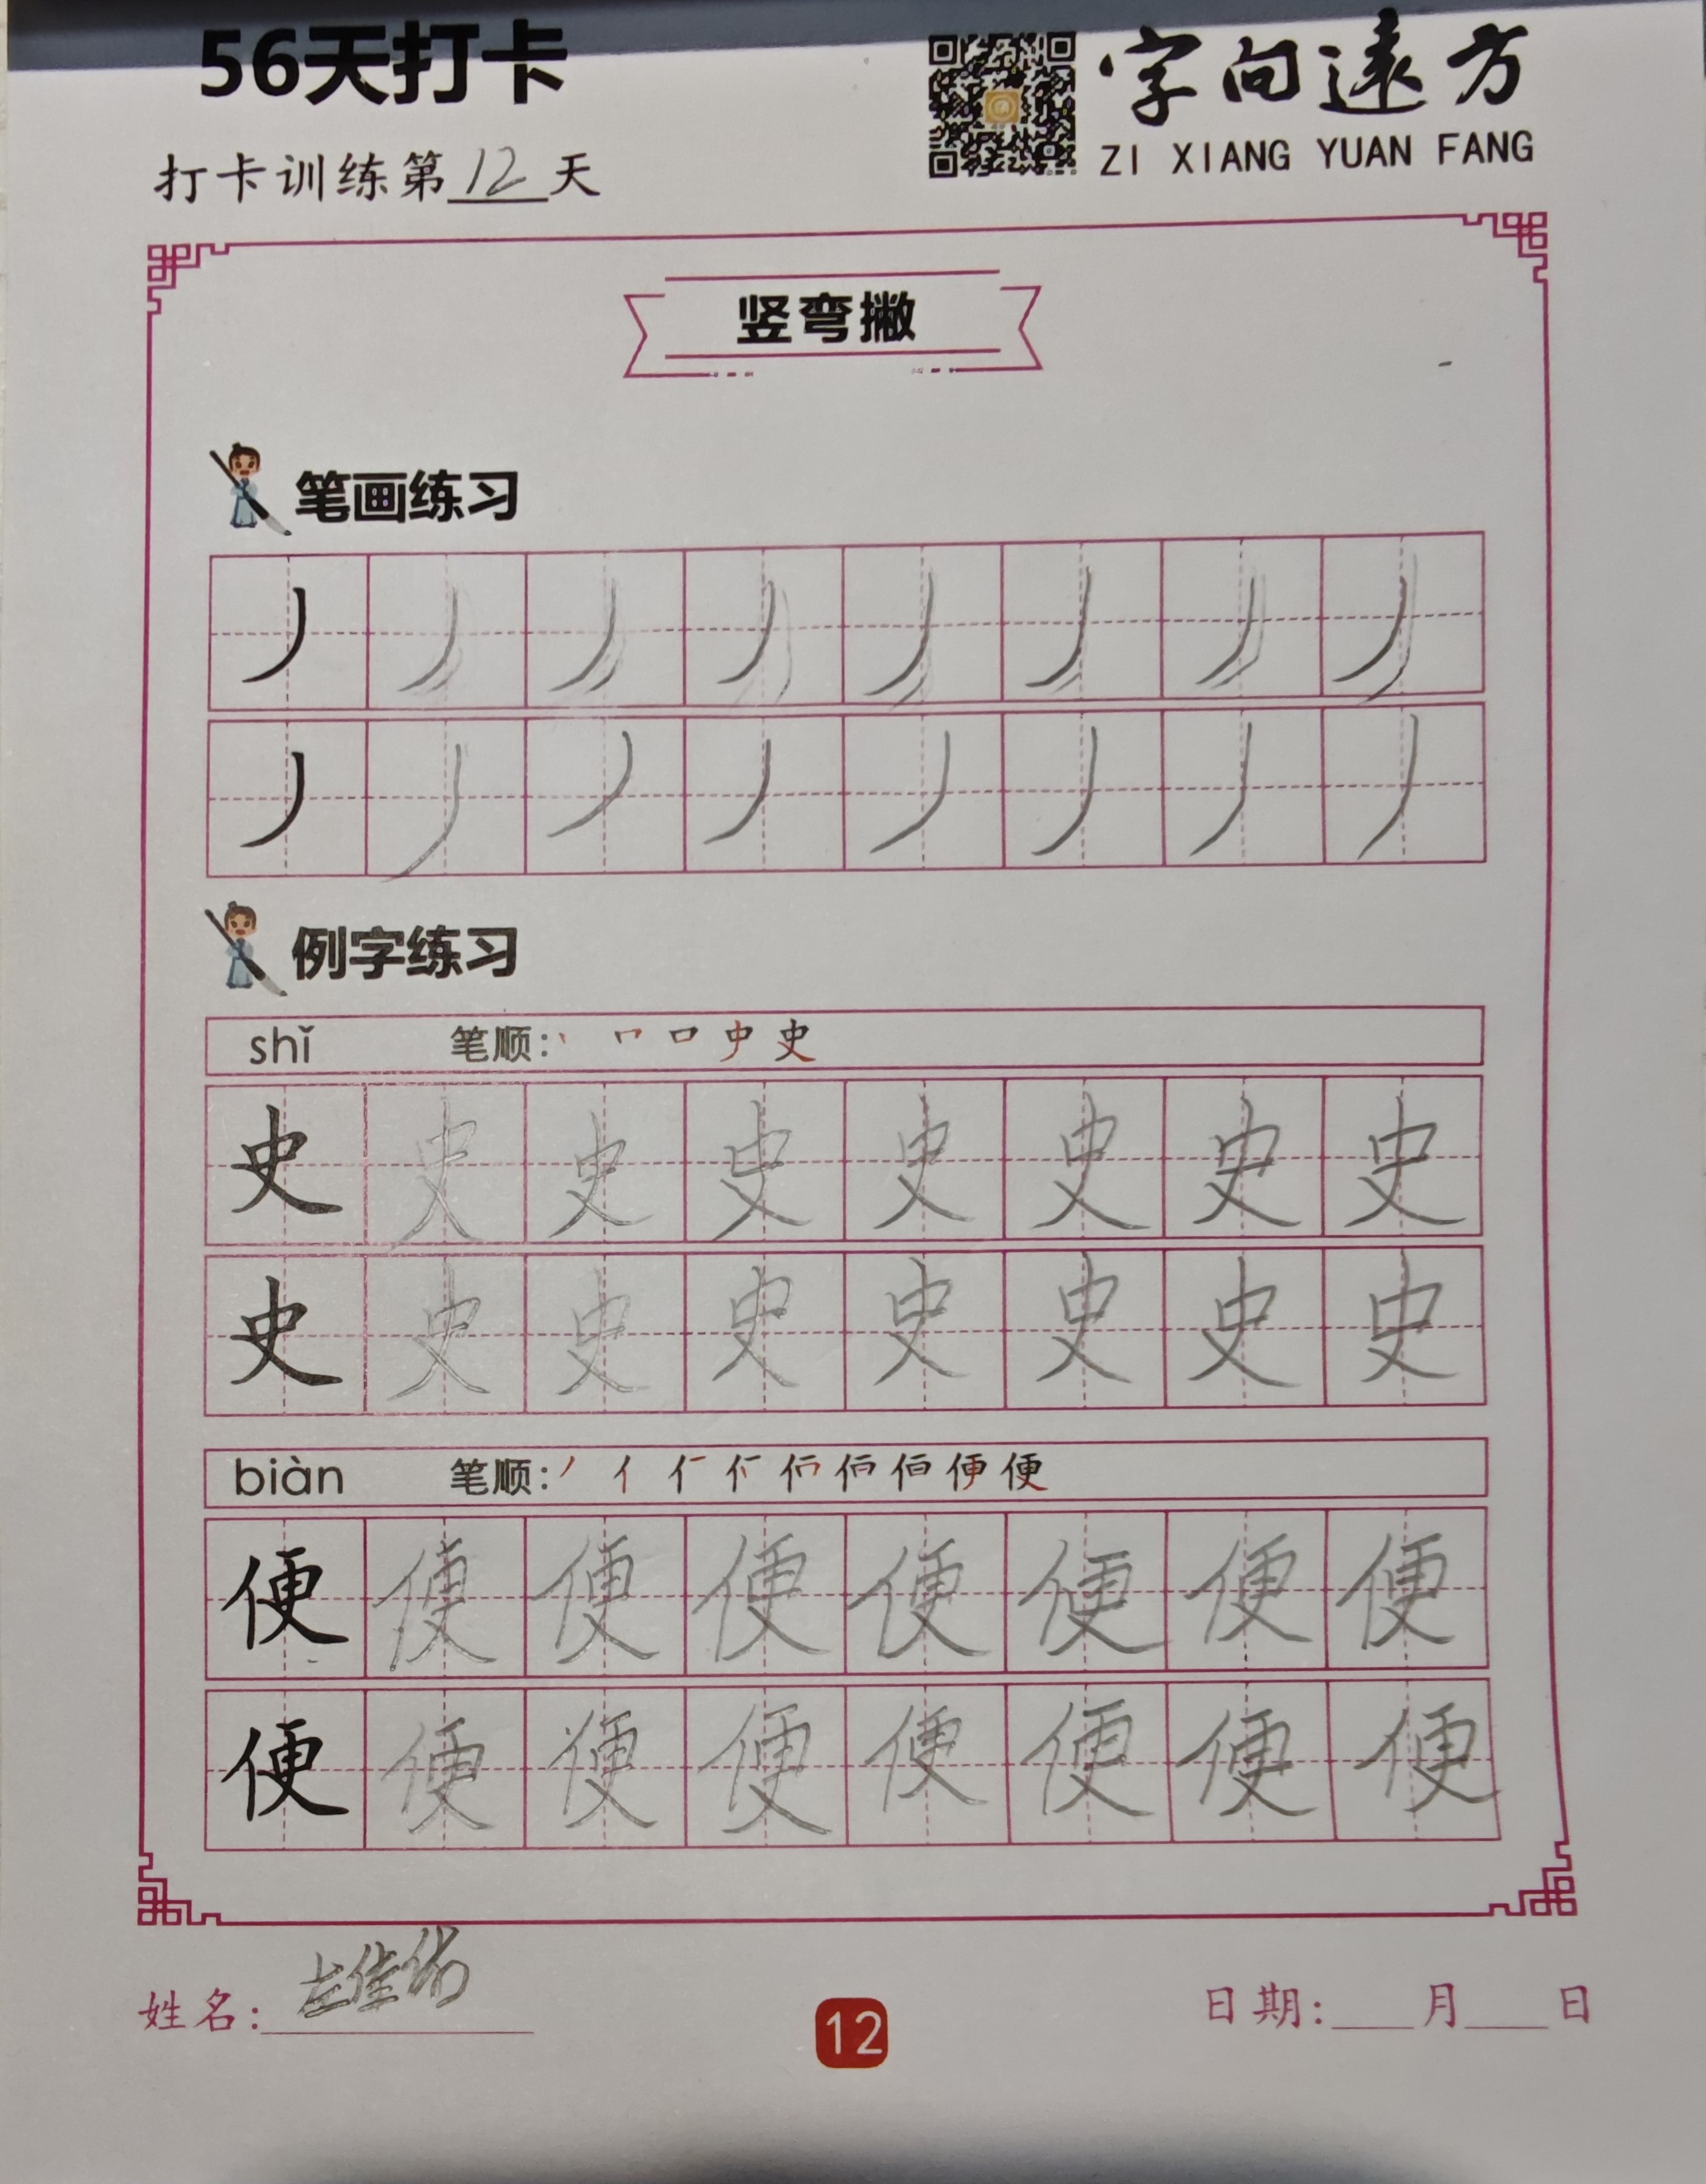 56天打卡
字向遠方
ZI XIANG YUAN FANG
打卡训练第12天
竖弯撇
笔画练习
丿 丿 丿 丿 丿 丿 丿 丿
丿 丿 丿 丿 丿 丿 丿 丿
例字练习
shǐ 笔顺: 史
史 史 史 史 史 史 史 史
史 史 史 史 史 史 史 史
biàn 笔顺: 便
便 便 便 便 便 便 便 便
便 便 便 便 便 便 便 便
姓名:
12
日期:___月___日